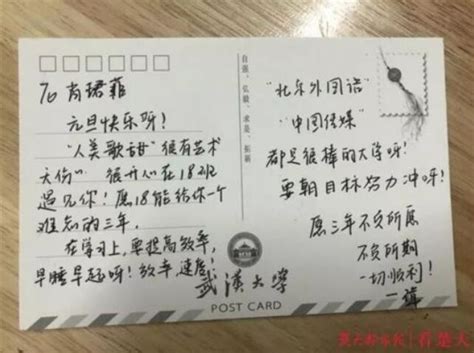 To 肖珺菲
元旦快乐呀！
"人美歌甜" 很有艺术
天份" 很开心在18班
遇见你！愿18能给你一个
难忘的三年。
在学习上，要提高效率，
早睡早起呀！效率，速度！
自强、弘毅、求是、拓新
武汉大学
POST CARD
"北京外国语"
"中国传媒"
都是很棒的大学呀！
要朝目标努力冲呀！
愿三年不负所愿
不负所期
一切顺利！
看楚天